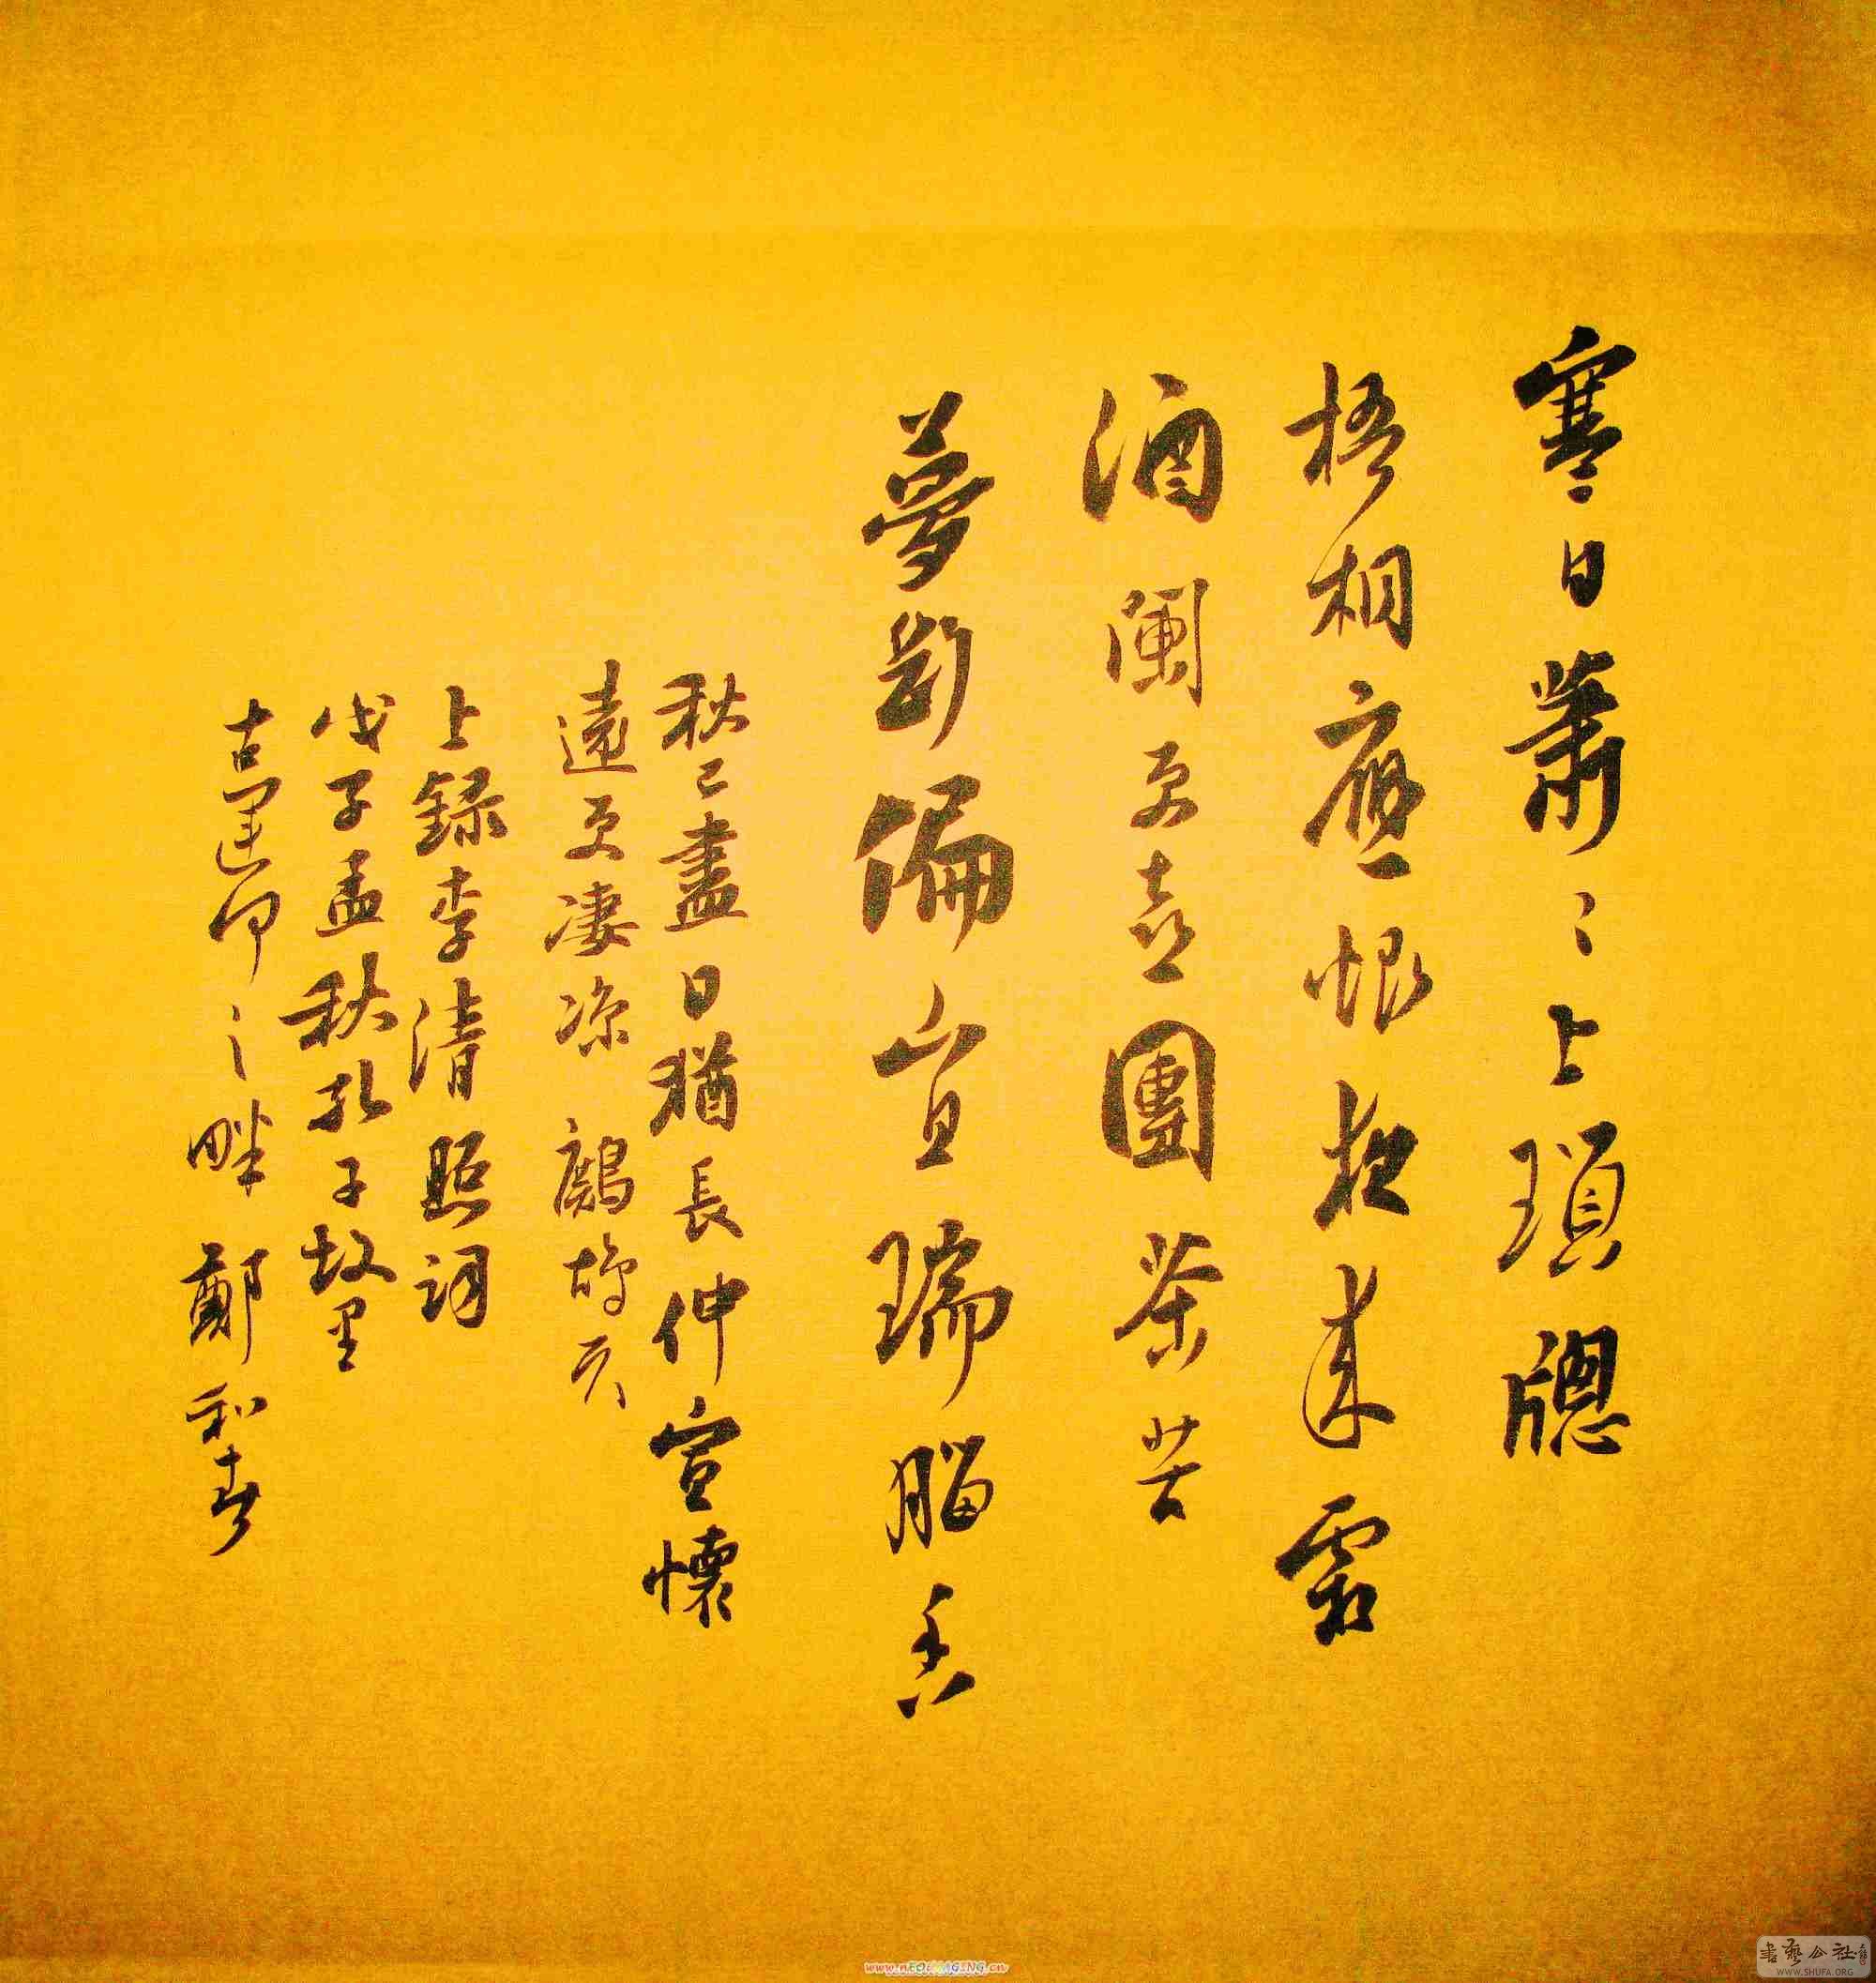 寒日蕭〻上瑣牕
梧桐應恨夜来霜
酒闌更喜團茶苦
夢斷偏宜瑞腦香
秋已盡日猶長仲宣懷
遠更凄凉 鷓鴣天
上録李清照詞
戊子孟秋孔子故里
古運河之畔 鄭和春
www.nEOiMAGING.cn
書藝公社
WWW.SHUFA.ORG